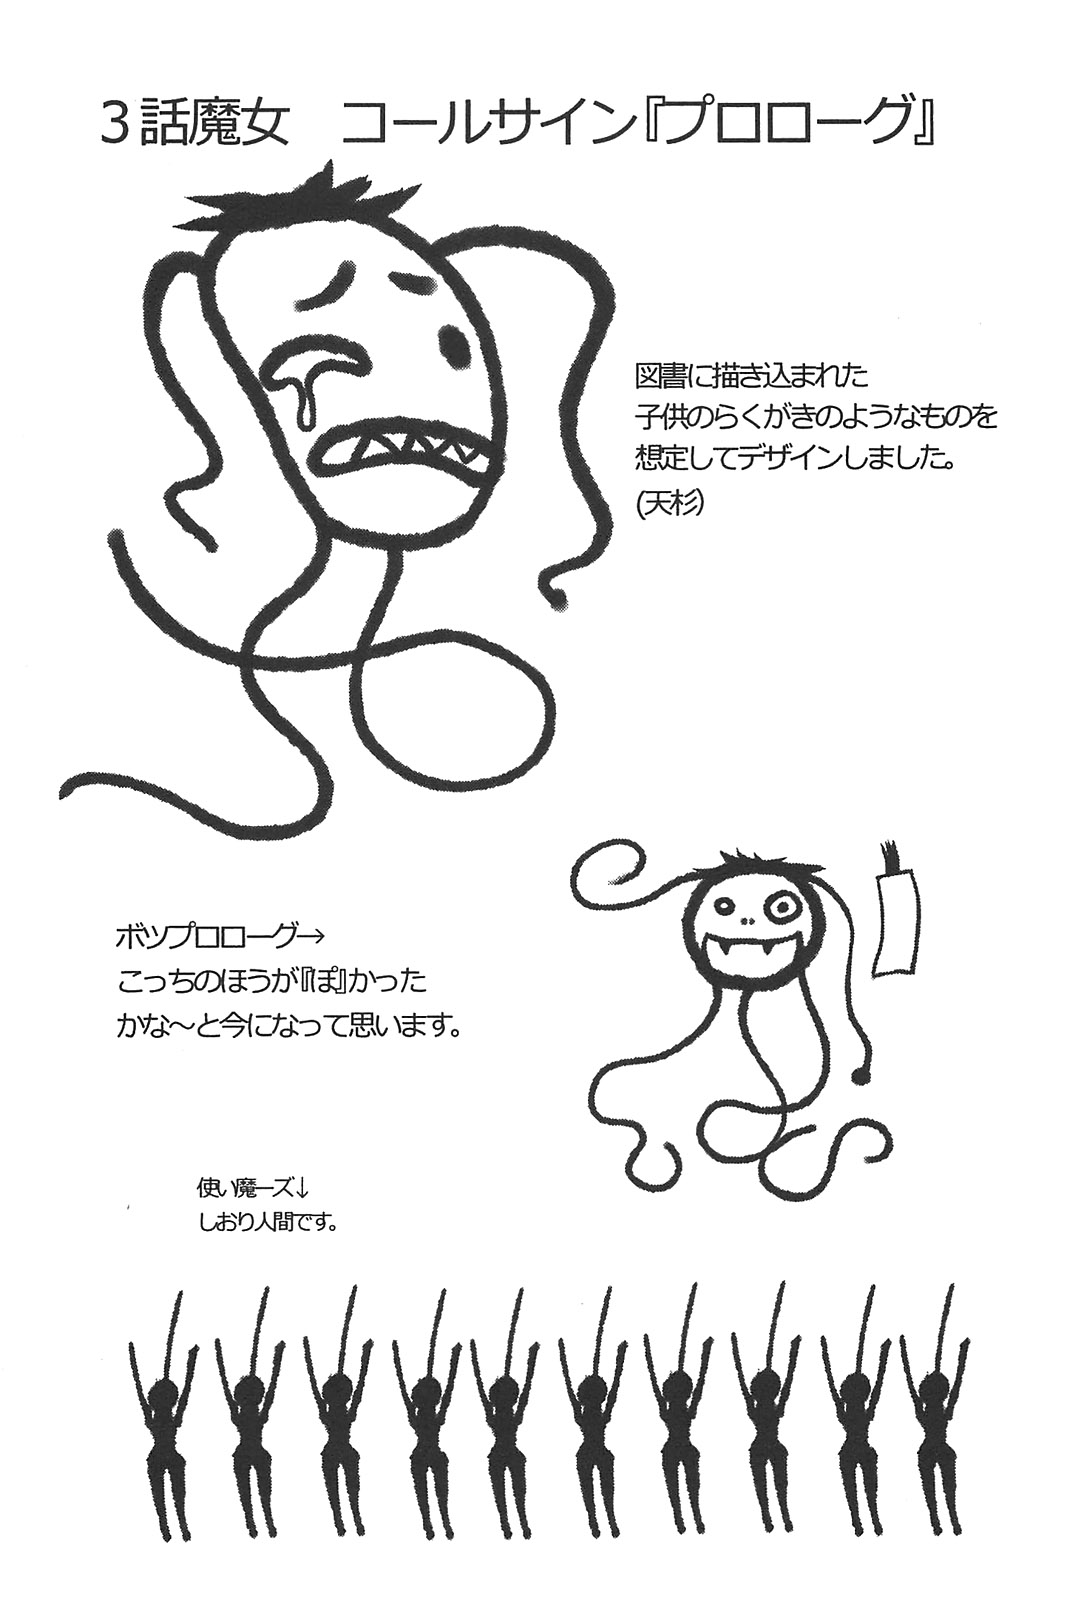 3話魔女　コールサイン『プロローグ』
図書に描き込まれた
子供のらくがきのようなものを
想定してデザインしました。
(天杉)
ボツプロローグ→
こっちのほうが『ぽ』かった
かな～と今になって思います。
使い魔ーズ↓
しおり人間です。